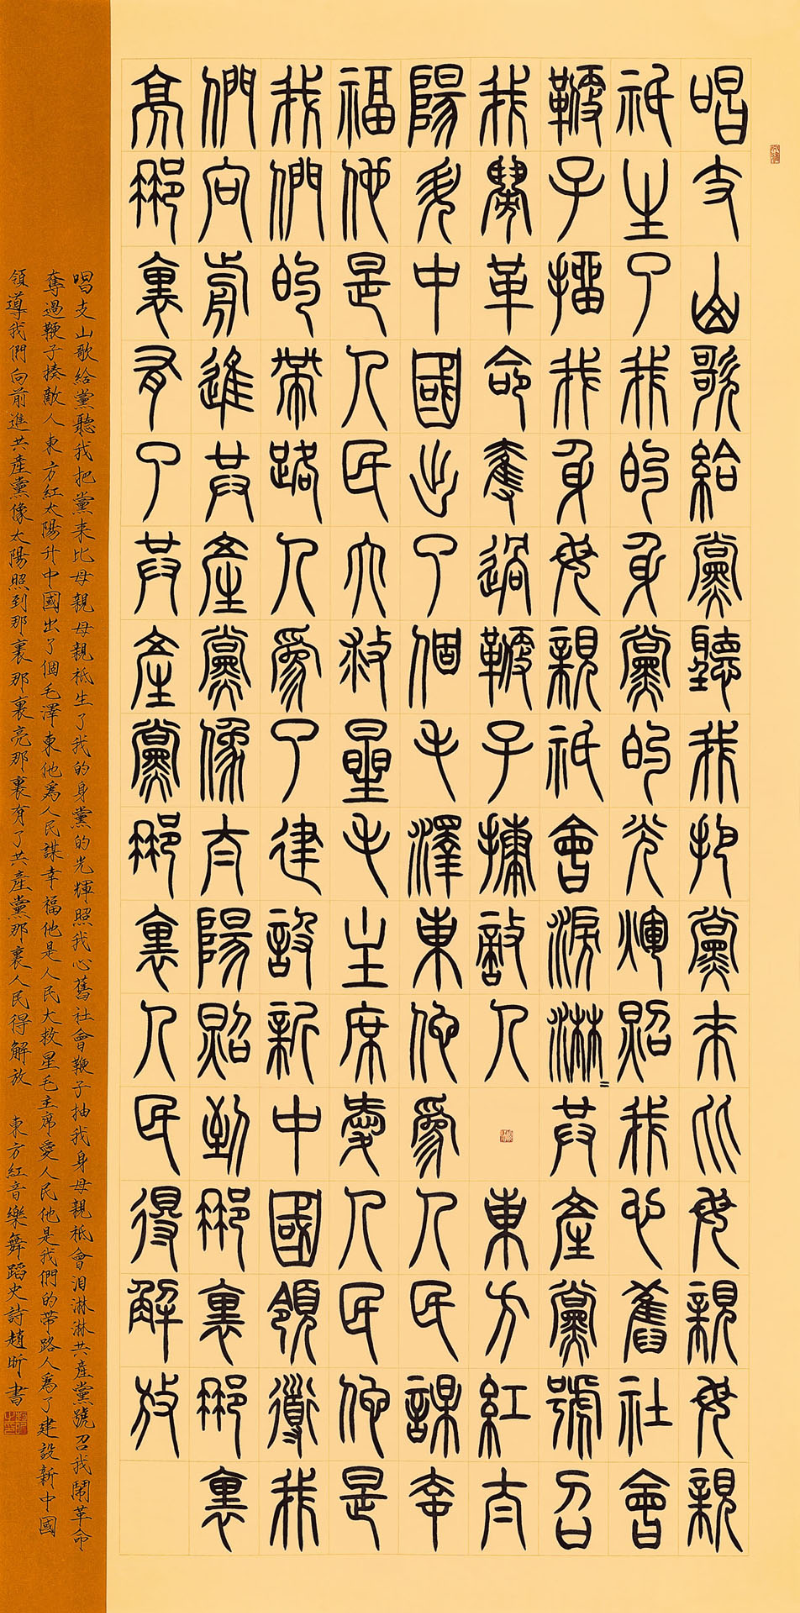 唱支山歌給黨聽我把黨來比母親母親
祇生了我的身黨的光輝照我心舊社會
鞭子抽我身母親祇會淚淋〻共產黨號召
我鬧革命奪過鞭子揍敵人 東方紅太
陽升中國出了個毛澤東他爲人民謀幸
福他是人民大救星毛主席愛人民他是
我們的帶路人爲了建設新中國領導我
們向前進共產黨像太陽照到那裏那裏
亮那裏有了共產黨那裏人民得解放
唱支山歌給黨聽我把黨來比母親母親祇生了我的身黨的光輝照我心舊社會鞭子抽我身母親祇會泪淋淋共產黨號召我鬧革命
奪過鞭子揍敵人東方紅太陽升中國出了個毛澤東他爲人民謀幸福他是人民大救星毛主席愛人民他是我們的帶路人爲了建設新中國
領導我們向前進共產黨像太陽照到那裏那裏亮那裏有了共產黨那裏人民得解放 東方紅音樂舞蹈史詩趙昕書